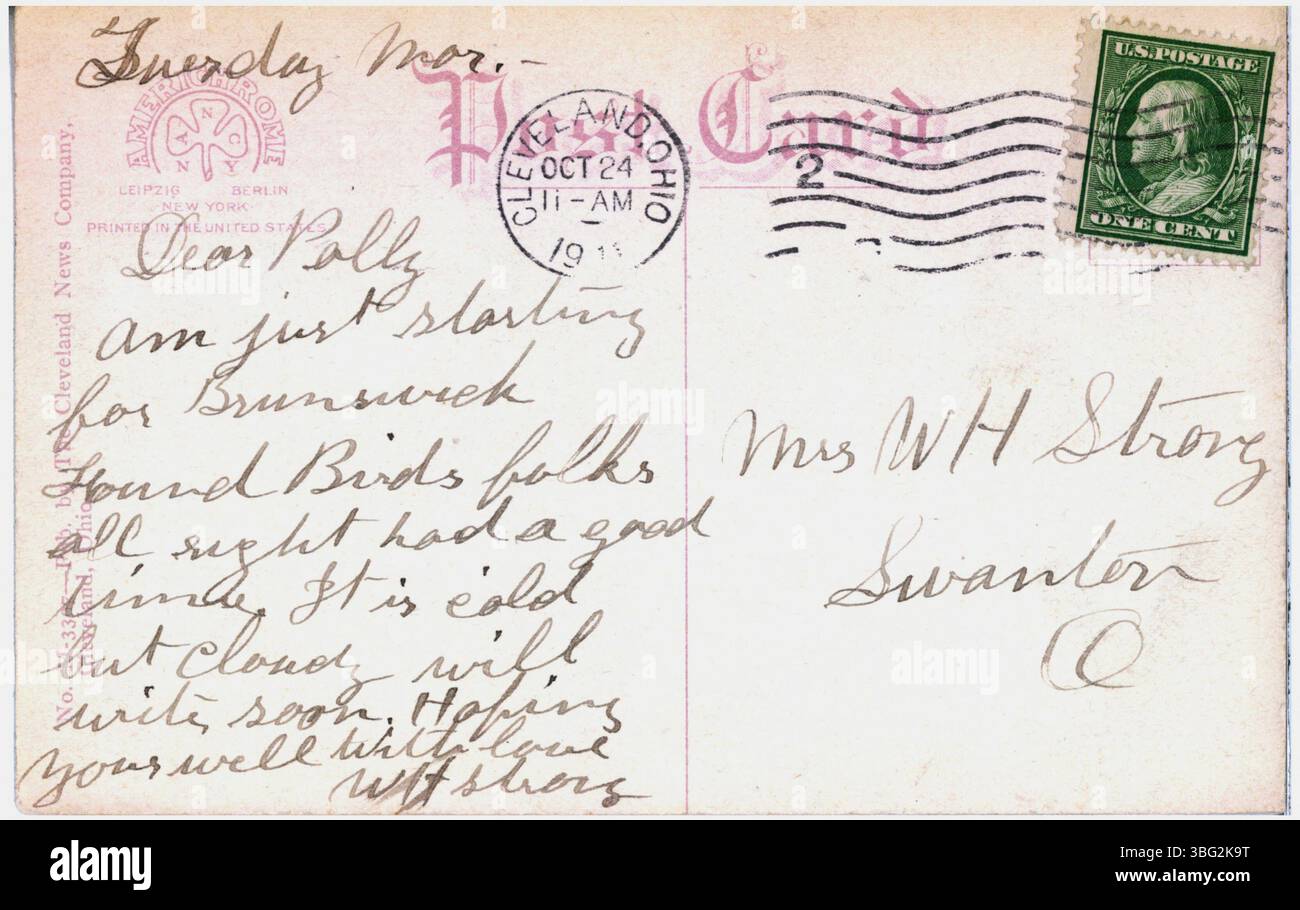 Tuesday Mor. -
Post Card
AMERICHROME
NANCY
LEIPZIG BERLIN
NEW YORK
PRINTED IN THE UNITED STATES
CLEVELAND, OHIO
OCT 24
11-AM
191
2
U.S. POSTAGE
ONE CENT
Dear Polly
am just starting
for Brunswick
Found Birds folks
all right had a good
time. It is cold
but cloudy will
write soon. Hoping
your well with love
WH Strong
Mrs WH Strong
Swanton
O
Pub. by The Cleveland News Company,
Cleveland, Ohio
alamy
Image ID: 3BG2K9T
www.alamy.com